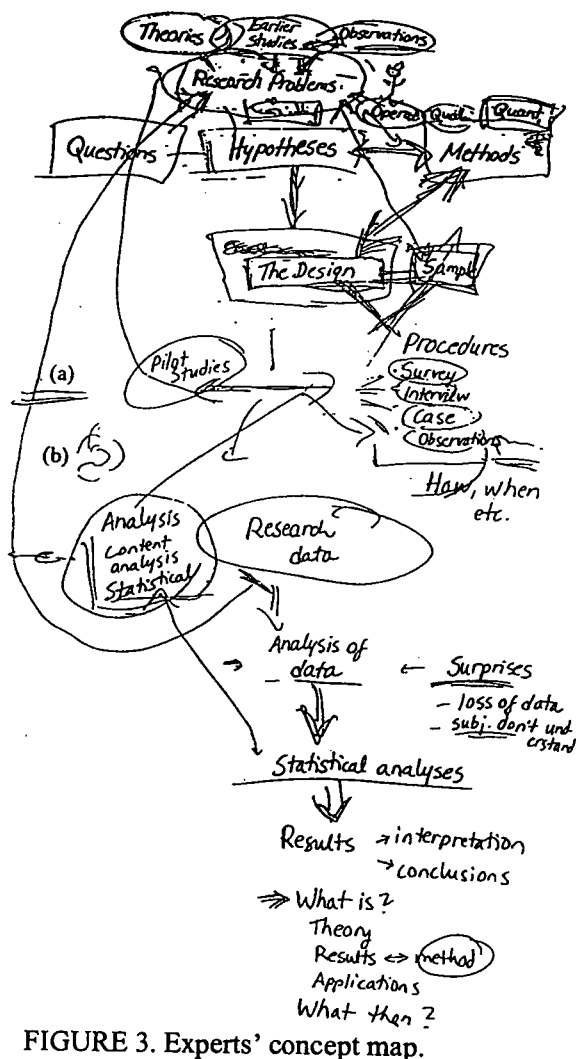 Theories Earlier Studies Observations
Research Problems
Operat. Qual. Quant
Questions Hypotheses Methods
The Design Sample
Procedures
Pilot Studies
(a)
Survey
Interview
Case
Observations
(b)
How, when
etc.
Analysis
Content
analysis
Statistical
Research
data
Analysis of
data
Surprises
- loss of data
- subj. don't und
erstand
Statistical analyses
Results → interpretation
→ conclusions
⇒ What is?
Theory
Results ↔ method
Applications
What then?
FIGURE 3. Experts' concept map.